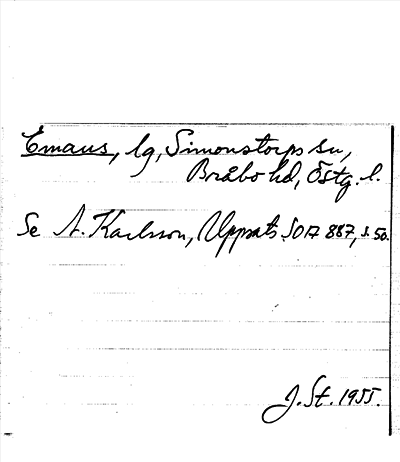 Emaus, lg, Simonstorps sn,
Bråbo hd, Östg. l.
Se A. Karlsson, Uppsats. SOA 887, s. 50.
J. St. 1955.